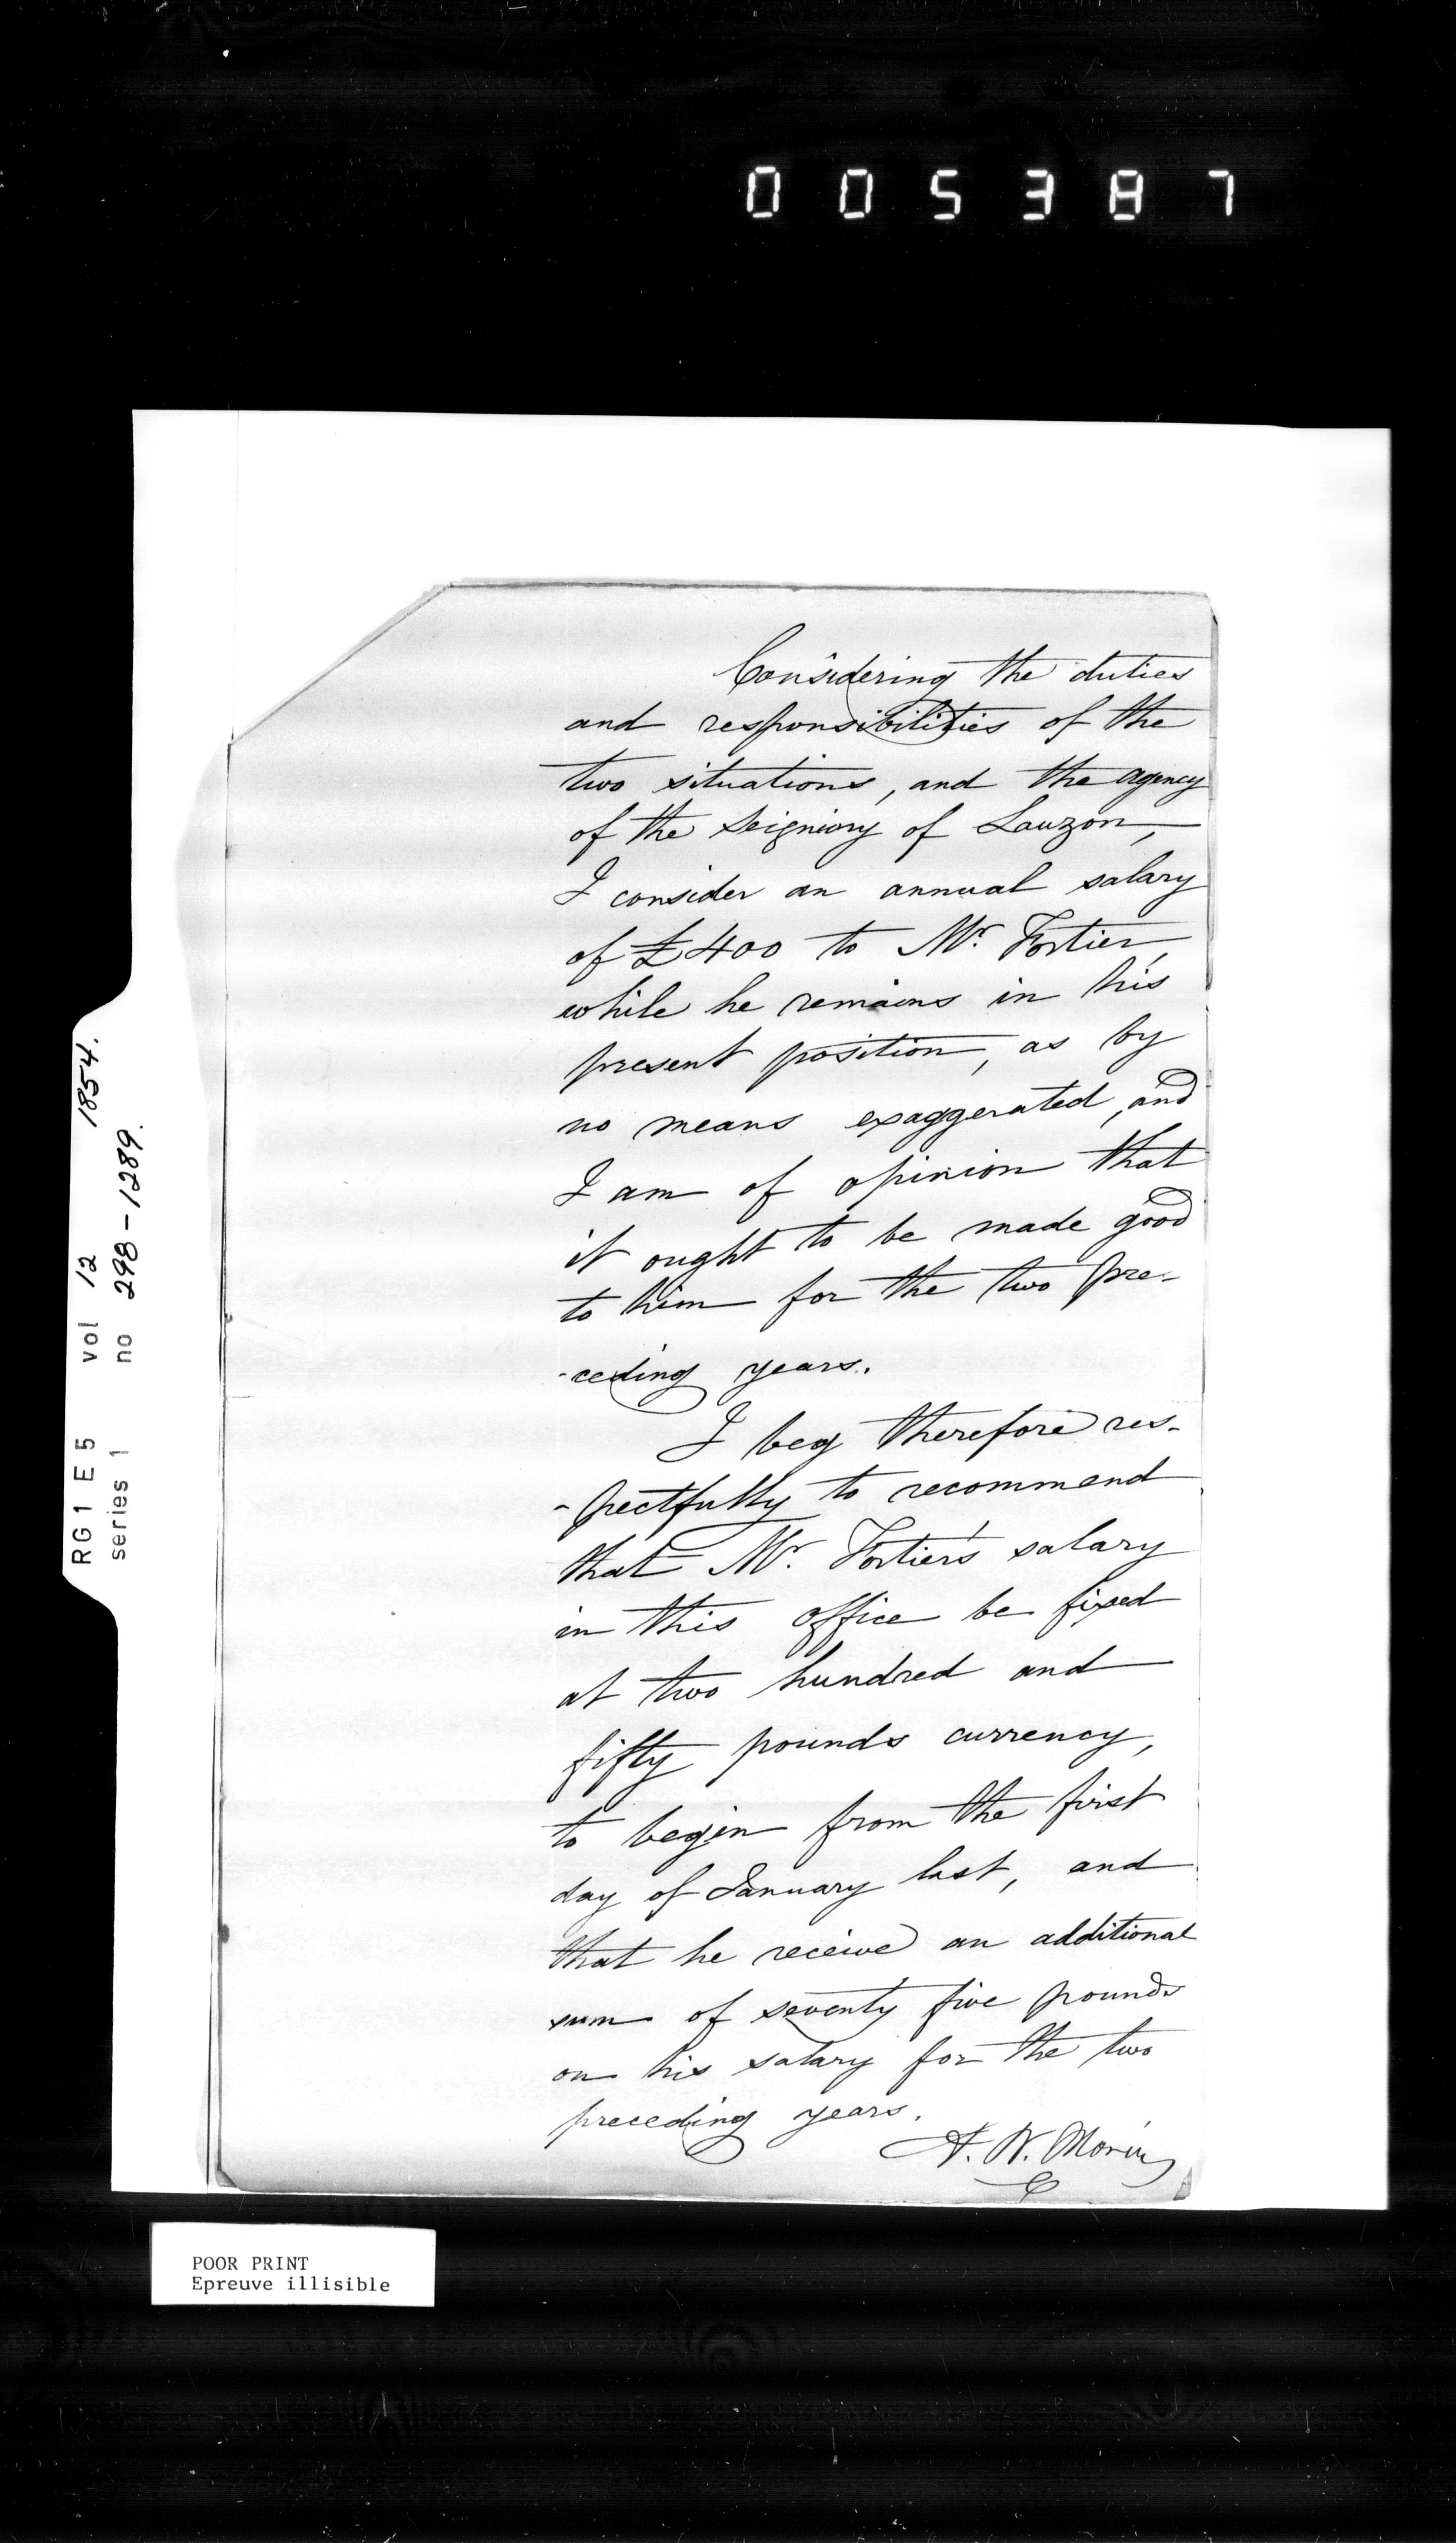 0 0 5 3 8 7
Considering the duties
and responsibilities of the
two situations, and the agency
of the Seigniory of Lauzon,
I consider an annual salary
of £400 to Mr. Fortier,
while he remains in his
present position, as by
no means exaggerated, and
I am of opinion that
it ought to be made good
to him for the two pre-
-ceding years.
I beg therefore res-
-pectfully to recommend
that Mr. Fortier's salary
in this office be fixed
at two hundred and
fifty pounds currency,
to begin from the first
day of January last, and
that he receive an additional
sum of seventy five pounds
on his salary for the two
preceding years.
A. N. Morin
RG1 E5 vol 12 1854.
series 1 no 298-1289.
POOR PRINT
Epreuve illisible